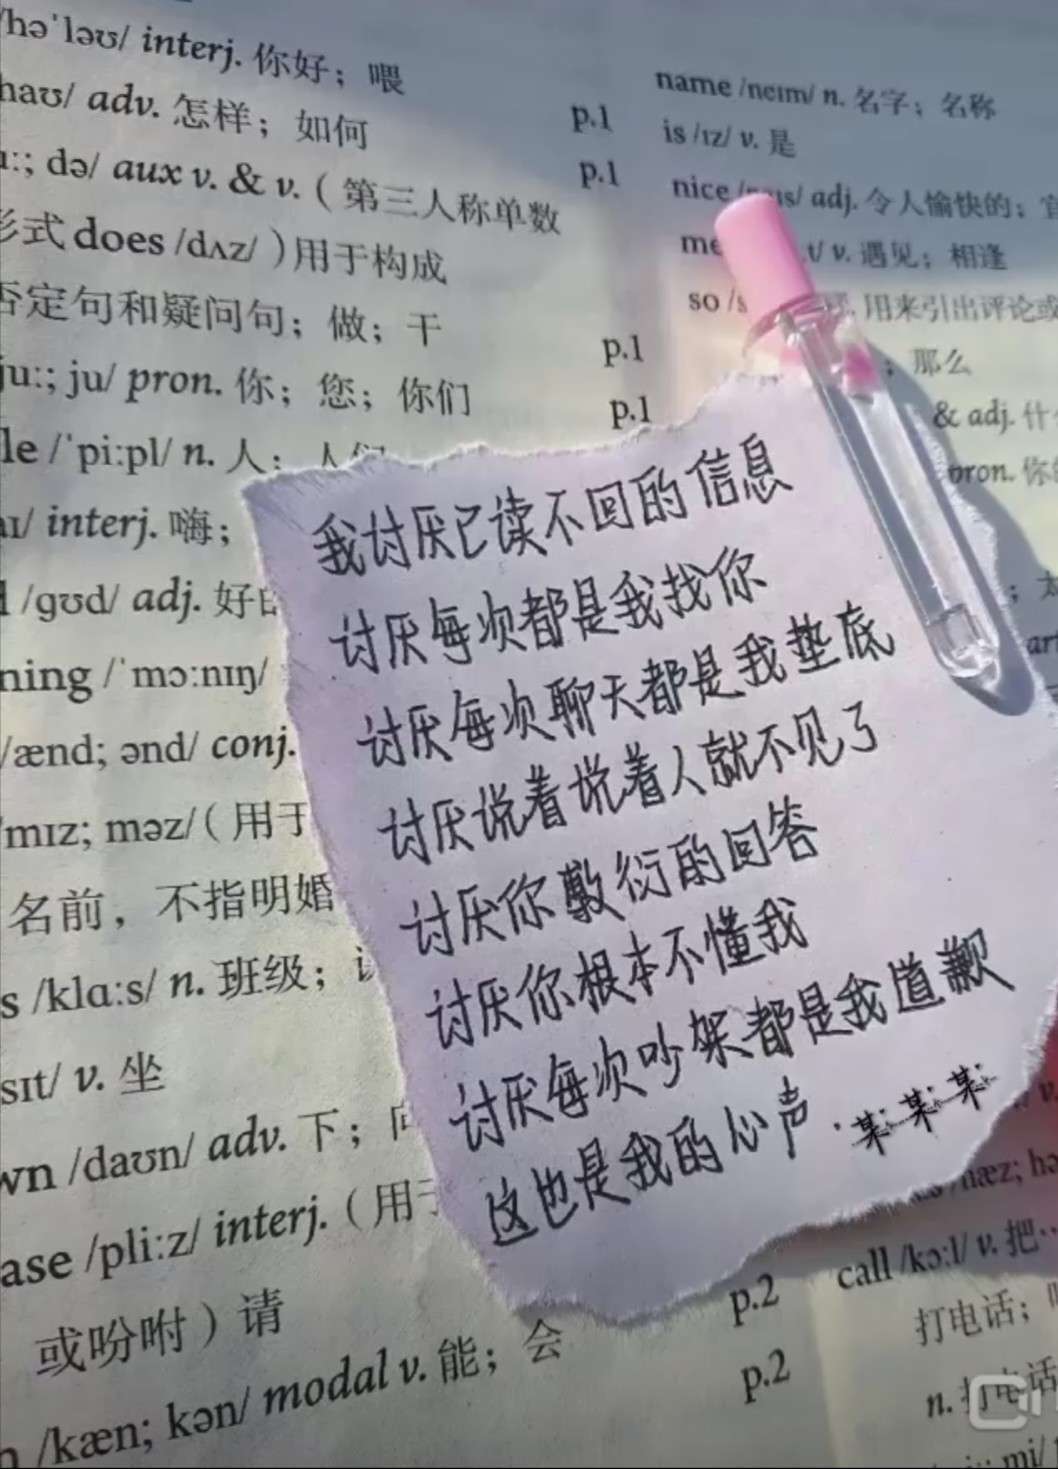 /hə'ləʊ/ interj. 你好；喂
haʊ/ adv. 怎样；如何
p.1
ː; də/ aux v. & v.（第三人称单数
p.1
形式 does /dʌz/ ）用于构成
否定句和疑问句；做；干
p.1
juː; ju/ pron. 你；您；你们
p.1
le /ˈpiːpl/ n. 人；人们
aɪ/ interj. 嗨；
/ɡʊd/ adj. 好
ning /ˈmɔːnɪŋ/
/ænd; ənd/ conj.
ˈmɪz; məz/（用于
名前，不指明婚
s /klɑːs/ n. 班级；
sɪt/ v. 坐
wn /daʊn/ adv. 下；
ase /pliːz/ interj.（用于
或吩咐）请
p.2
/kæn; kən/ modal v. 能；会
p.2
name /neɪm/ n. 名字；名称
is /ɪz/ v. 是
nice adj. 令人愉快的；宜
me t/ v. 遇见；相逢
so /s 用来引出评论或
；那么
& adj. 什
pron. 你
；太
我讨厌已读不回的信息
讨厌每次都是我找你
讨厌每次聊天都是我垫底
讨厌说着说着人就不见了
讨厌你敷衍的回答
讨厌你根本不懂我
讨厌每次吵架都是我道歉
这也是我的心声.某某某
hæz; hə
call /kɔːl/ v. 把…
打电话；
n. 打电话
mi/